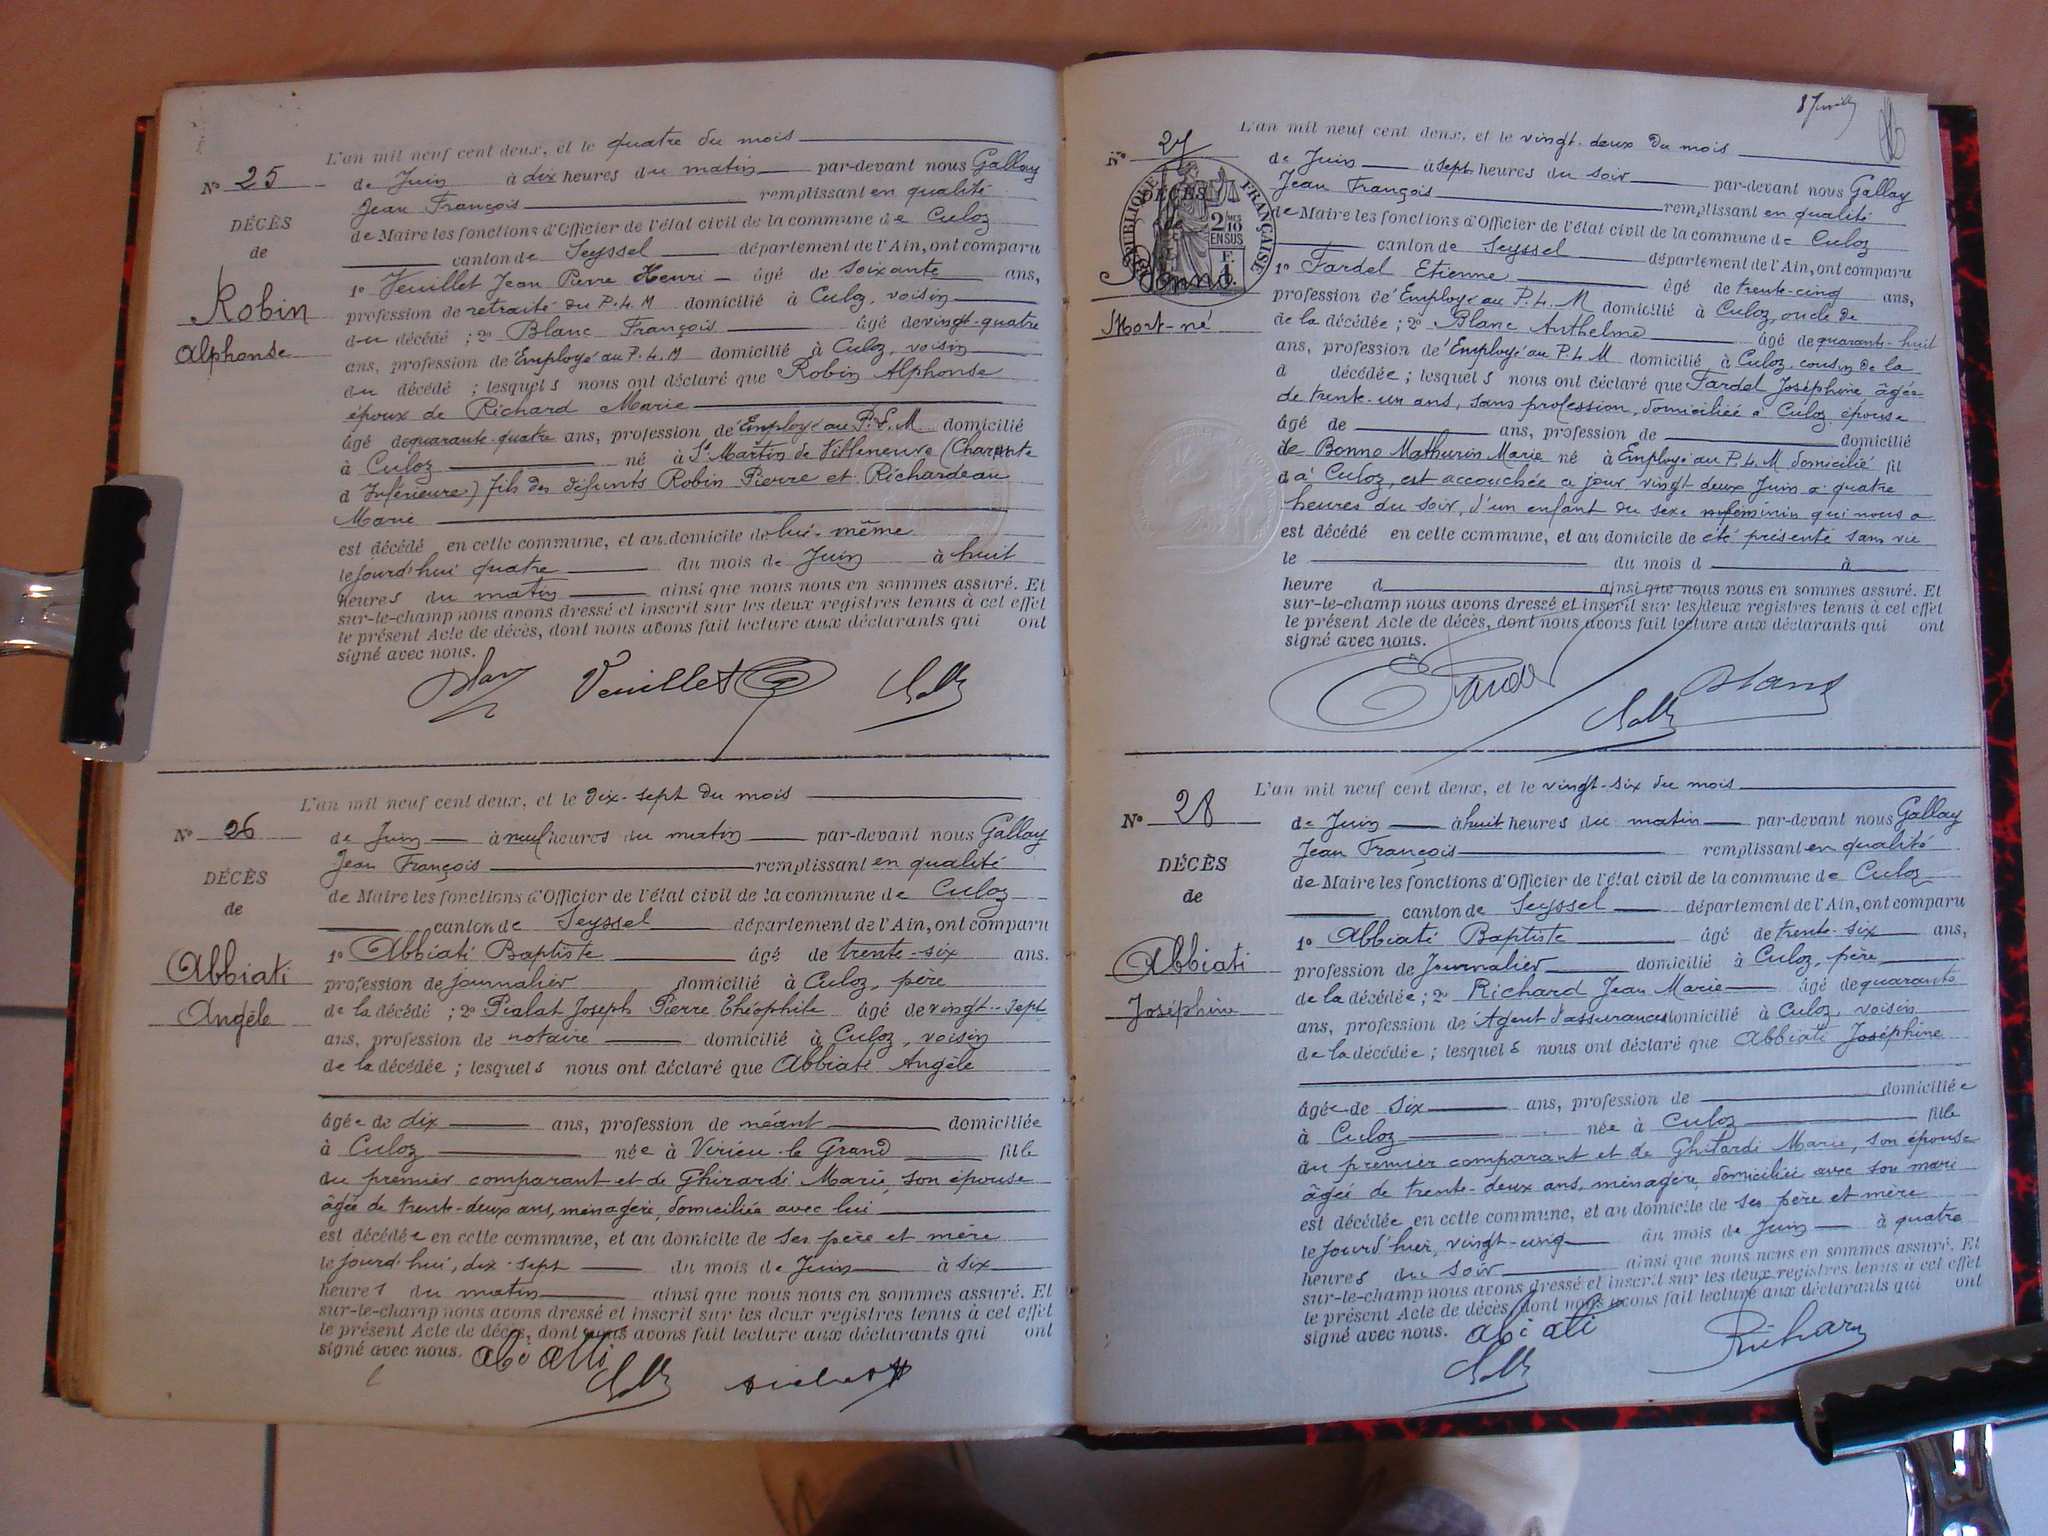 L'an mil neuf cent deux, et le quatre du mois
N° 25 de Juin à dix heures du matin par-devant nous Gallay
Jean François remplissant en qualité
DÉCÈS de Maire les fonctions d'Officier de l'état civil de la commune de Culoz
de canton de Seyssel département de l'Ain, ont comparu
1° Veuillet Jean Pierre Henri âgé de soixante ans,
Robin profession de retraité du P.L.M domicilié à Culoz, voisin
du décédé ; 2° Blanc François âgé de vingt-quatre
Alphonse ans, profession de Employé au P.L.M domicilié à Culoz, voisin
du décédé ; lesquels nous ont déclaré que Robin Alphonse
époux de Richard Marie
âgé de quarante-quatre ans, profession de Employé au P.L.M domicilié
à Culoz né à St Martin de Villeneuve (Charente
d Inférieure) fils des défunts Robin Pierre et Richardeau
Marie
est décédé en cette commune, et au domicile de lui-même
le jourd'hui quatre du mois de Juin à huit
heures du matin ainsi que nous nous en sommes assuré. Et
sur-le-champ nous avons dressé et inscrit sur les deux registres tenus à cet effet
le présent Acte de décès, dont nous avons fait lecture aux déclarants qui ont
signé avec nous.
Veuillet
L'an mil neuf cent deux, et le dix-sept du mois
N° 26 de Juin à neuf heures du matin par-devant nous Gallay
Jean François remplissant en qualité
DÉCÈS de Maire les fonctions d'Officier de l'état civil de la commune de Culoz
de canton de Seyssel département de l'Ain, ont comparu
1° Abbiati Baptiste âgé de trente-six ans.
Abbiati profession de journalier domicilié à Culoz, père
Angèle de la décédé ; 2° Pialat Joseph Pierre Théophile âgé de vingt-sept
ans, profession de notaire domicilié à Culoz, voisin
de la décédée ; lesquels nous ont déclaré que Abbiati Angèle
âgée de dix ans, profession de néant domiciliée
à Culoz née à Virieu-le Grand fille
du premier comparant et de Ghirardi Marie, son épouse
âgée de trente-deux ans, ménagère, domiciliée avec lui
est décédée en cette commune, et au domicile de ses père et mère
le jourd'hui, dix-sept du mois de Juin à six
heures du matin ainsi que nous nous en sommes assuré. Et
sur-le-champ nous avons dressé et inscrit sur les deux registres tenus à cet effet
le présent Acte de décès, dont nous avons fait lecture aux déclarants qui ont
signé avec nous. abiatti
L'an mil neuf cent deux, et le vingt-deux du mois
N° 27 de Juin à sept heures du soir par-devant nous Gallay
Jean François remplissant en qualité
DÉCÈS de Maire les fonctions d'Officier de l'état civil de la commune de Culoz
RÉPUBLIQUE FRANÇAISE
2/10 EN SUS
canton de Seyssel département de l'Ain, ont comparu
Bonne 1° Fardel Etienne âgé de trente-cinq ans,
profession de Employé au P.L.M domicilié à Culoz, oncle de
Mort-né de la décédée ; 2° Blanc Anthelme âgé de quarante-huit
ans, profession de Employé au P.L.M domicilié à Culoz, cousin de la
d décédée ; lesquels nous ont déclaré que Fardel Joséphine âgée
de trente-un ans, sans profession, domiciliée à Culoz épouse
âgé de ans, profession de domicilié
de Bonne Mathurin Marie né à Employé au P.L.M domicilié fil
d à Culoz, est accouchée ce jour, vingt deux Juin à quatre
heures du soir, d'un enfant du sexe féminin qui nous a
est décédé en cette commune, et au domicile de été présenté sans vie
le du mois d à
heure d ainsi que nous nous en sommes assuré. Et
sur-le-champ nous avons dressé et inscrit sur les deux registres tenus à cet effet
le présent Acte de décès, dont nous avons fait lecture aux déclarants qui ont
signé avec nous.
L'an mil neuf cent deux, et le vingt-six du mois
N° 28 de Juin à huit heures du matin par-devant nous Gallay
Jean François remplissant en qualité
DÉCÈS de Maire les fonctions d'Officier de l'état civil de la commune de Culoz
de canton de Seyssel département de l'Ain, ont comparu
1° Abbiati Baptiste âgé de trente-six ans,
Abbiati profession de Journalier domicilié à Culoz, père
Joséphine de la décédée ; 2° Richard Jean Marie âgé de quarante
ans, profession de Agent d'assurances domicilié à Culoz, voisin
de la décédée ; lesquels nous ont déclaré que Abbiati Joséphine
âgée de six ans, profession de domiciliée
à Culoz née à Culoz fille
du premier comparant et de Ghilardi Marie, son épouse
âgée de trente-deux ans, ménagère, domiciliée avec son mari
est décédée en cette commune, et au domicile de ses père et mère
le jourd'hier, vingt-cinq du mois de Juin à quatre
heures du soir ainsi que nous nous en sommes assuré. Et
sur-le-champ nous avons dressé et inscrit sur les deux registres tenus à cet effet
le présent Acte de décès, dont nous avons fait lecture aux déclarants qui ont
signé avec nous. abiati Richard